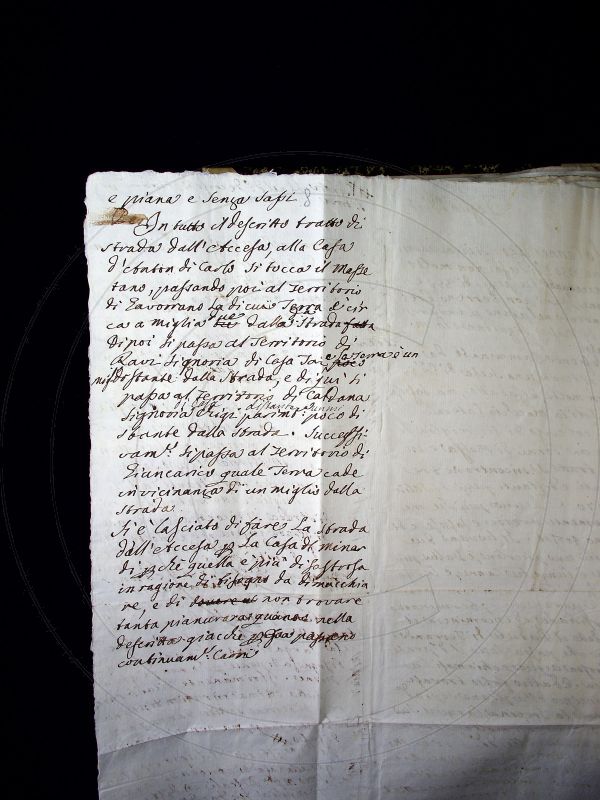 e piana e senza sassi 8
In tutto il descritto tratto di
strada dall'Accesa alla Casa
d'Anton di Carlo si tocca il Masse
tano, passando poi al Territorio
di Gavorrano La di cui Terra è cir
ca a miglia due dalla Strada
Di poi si passa al Territorio di
Ravi Signoria di Casa e sa Terra è un
distante dalla Strada, e di qui si
passa al Territorio di Caldana
Signoria parim.e poco di
stante dalla Strada. Successi
vam.e si passa al Territorio di
Giuncarico quale Terra cade
in vicinanza di un miglio dalla
strada
Si è lasciato di fare La strada
dall'Accesa p La Casa di minar
di pchè quella è più disastrosa
in ragione di bisogno da smacchia
re, e di non trovare
tanta pianura nella
descritta giacchè passano
continuam.e Carri